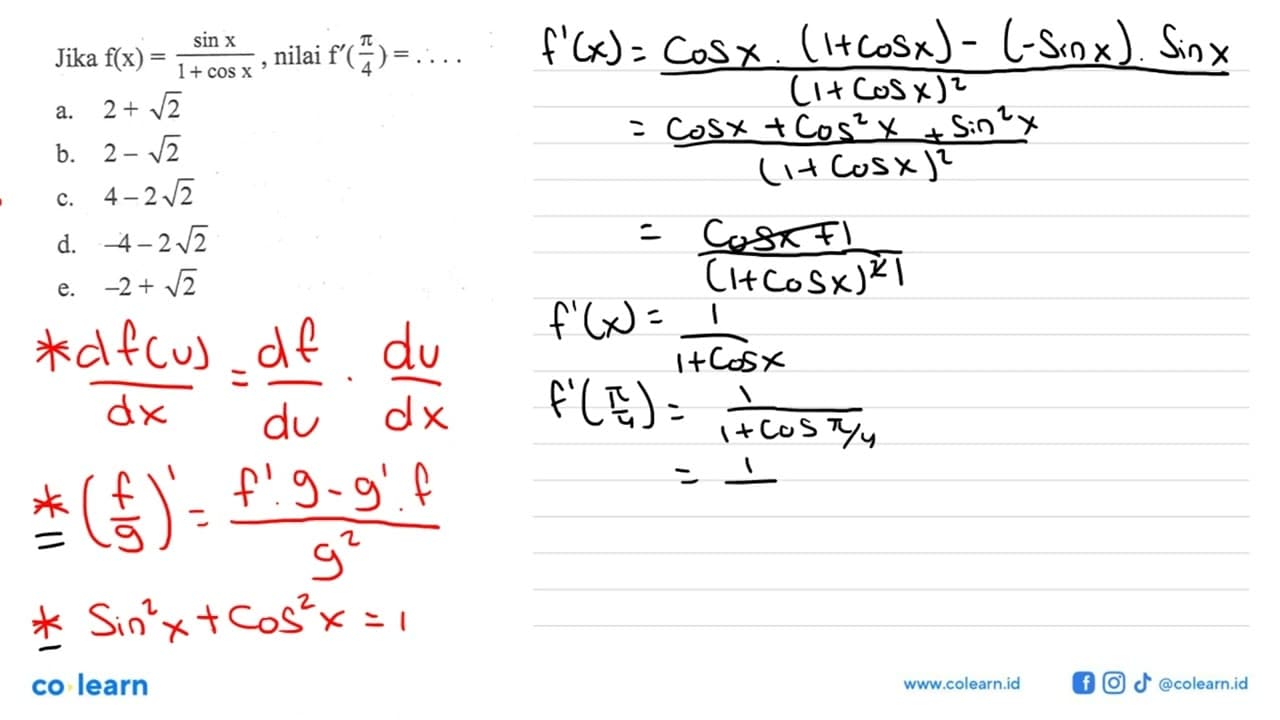 Jika f(x) = sin x / 1 + cos x , nilai f'(π/4) = . . . .
a. 2 + √2
b. 2 – √2
c. 4 – 2√2
d. –4 – 2√2
e. –2 + √2
* df(u)/dx = df/du . du/dx
* (f/g)' = f'.g - g'.f / g²
* Sin²x + Cos²x = 1
f'(x) = Cosx . (1+Cosx) - (-Sinx). Sinx / (1+Cosx)²
= Cosx + Cos²x + Sin²x / (1+Cosx)²
= Cosx + 1 / (1+Cosx)² 1
f'(x) = 1 / 1+Cosx
f'(π/4) = 1 / 1+Cos π/4
= 1
co learn
www.colearn.id
@colearn.id